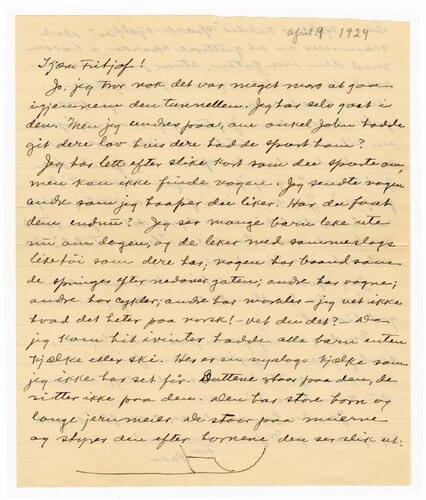 april 9 1924
Kjære Fritjof!
Jo, jeg tror nok det var meget moro at gaa
igjennem den tunnellen. Jeg har selv gaat i
den. Men jeg undres paa, om onkel John hadde
git dere lov hvis dere hadde spurt ham?
Jeg har lett efter slike kort som du spurte om,
men kan ikke finde nogen. Jeg sendte nogen
andre som jeg haaper du liker. Har du faat
dem endnu? Jeg ser mange barn leke ute
nu om dagen, og de leker med samme slags
leketøi som dere har; nogen har baand som
de springer efter nedover gaten; andre har vogne;
andre har cykler; andre har marbles – jeg vet ikke
hvad det heter paa norsk! – vet du det? – Da
jeg kom hit ivinter hadde alle barn enten
kjælke eller ski. Her er en nyslags kjælke som
jeg ikke har set før. Guttene staar paa den, de
sitter ikke paa den. Den har store horn og
lange jernmeier. De staar paa meierne
og styrer den efter hornene den ser slik ut: